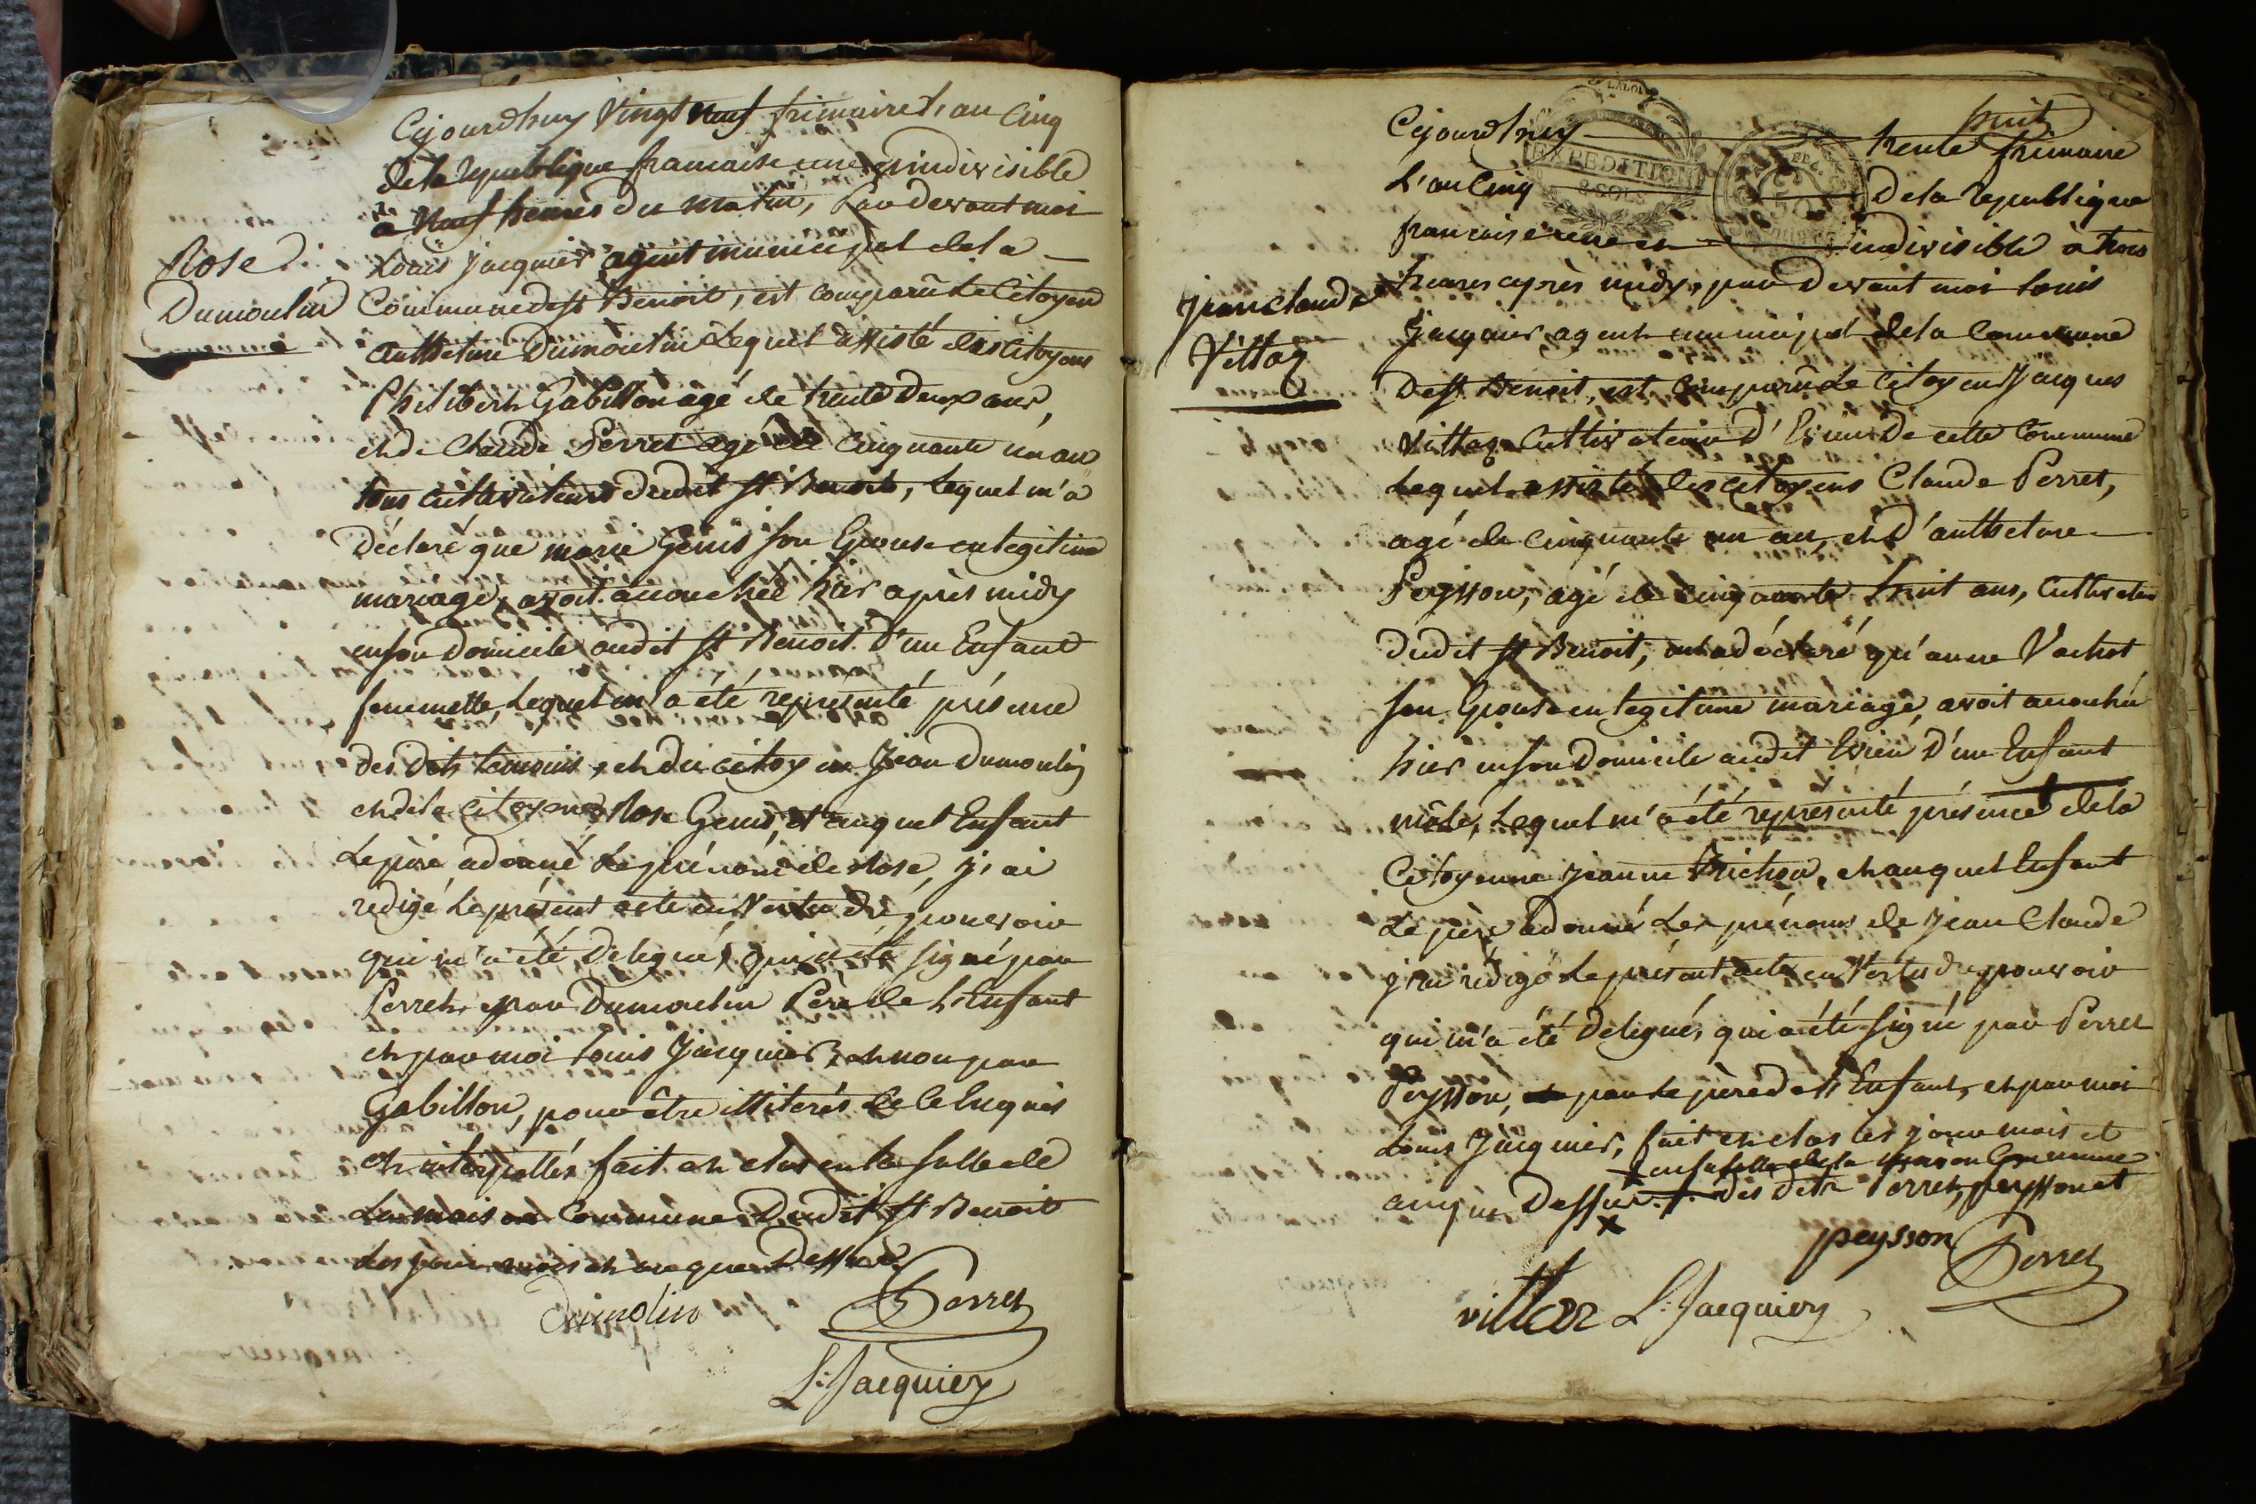 Rose
Dumoulin
Cejourdhuy Vingt neuf frimaire l'an Cinq
de la republique francaise une et indivisible
à Neuf heures du matin, Par devant moi
Louis Jacquier agent municipal de la
Commune de St Benoit, est comparû le Citoyen
anthelme Dumoulin lequel assisté des citoyens
Philibert Gabillon agé de trente deux ans,
et de Claude Perret agé de Cinquante un an
tous cultivateurs dudit St Benoit, lequel m'a
Déclaré que marie Genis son Epouse en legitime
mariage, avoit accouchée hier après midy
en son Domicile audit St Benoit D'un Enfant
femmelle, lequel m'a été représenté présence
des dits temoins, et du citoyen Jean Dumoulin
et de la citoyenne Rose Genis, et auquel Enfant
Le père a donné le prénom de Rose, j'ai
redigé le présent acte en vertu du pouvoir
qui m'a été Delegué, qui a été signé par
Perret, par Dumoulin Père de l'Enfant
et par moi Louis Jacquier, et non par
Gabillon, pour être illiterés de ce enquis
et interpellés fait et clos en la salle de
La maison Commune Dudit St Benoit
Les jour mois et an que Dessus
Dumolin Perret
L: Jacquier
huit
Jean Claude
Vittoz
Cejourdhuy trente frimaire
L'an Cinq De la republique
francaise une et indivisible à trois
heures après midy, par devant moi Louis
Jacquier agent municipal de la Commune
De St Benoit, est comparû le Citoyen Jacques
Vittoz Cultivateur D'Evieu De cette Commune
Lequel assisté des citoyens Claude Perret,
agé de cinquante un an, et D'anthelme
Peysson, agé de cinquante huit ans, Cultivateurs
Dudit St Benoit, m'a déclaré qu'anne Vachot
son Epouse en legitime mariage, avoit accouchée
hier en son Domicile audit Evieu D'un Enfant
mâle, Lequel m'a été représenté présence de la
Citoyenne Jeanne Trichon, et auquel Enfant
Le père a donné les prénoms de Jean Claude
j'ai rédigé le présent acte en Vertu du pouvoir
qui m'a été Delegué, qui a été signé par Perret
Peysson, par le père de l'Enfant, et par moi
Louis Jacquier, fait et clos les jour mois et
x en la salle de la maison Commune
an que Dessus x des dits Perret, peysson et
peysson Perret
vittoz L: Jacquier
EXPEDITION
2 SOLS